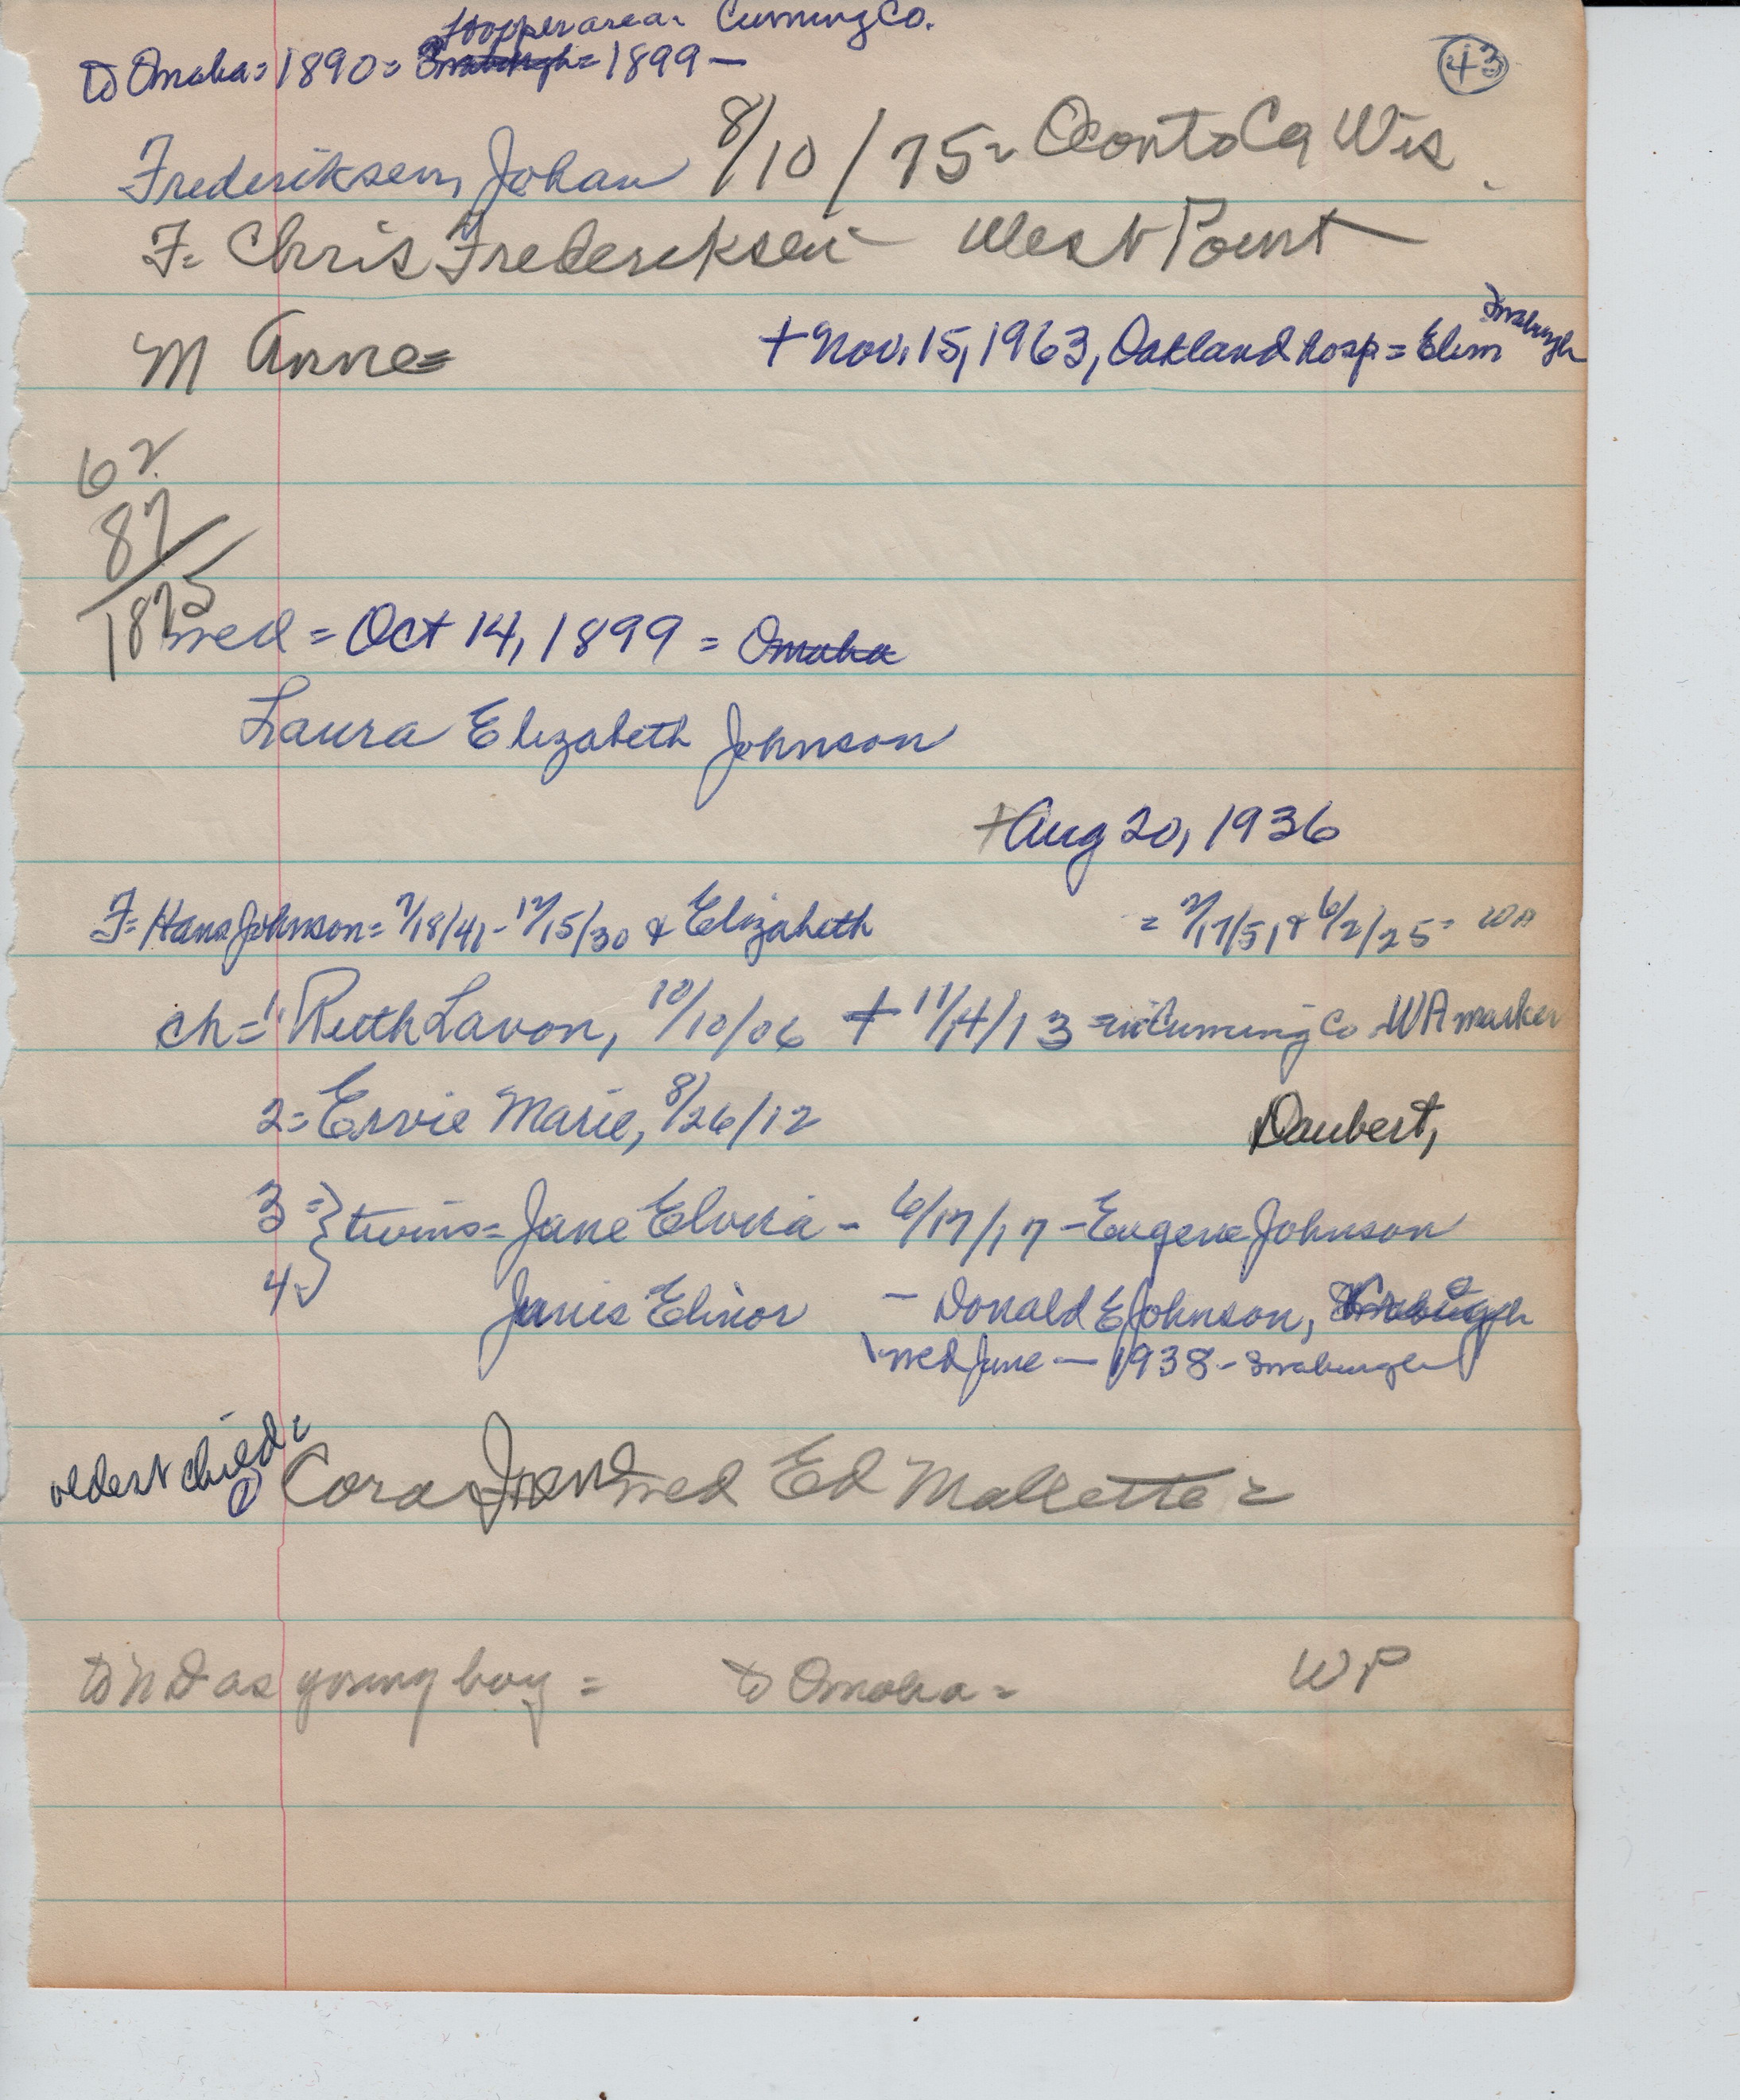 Hooper area. Cuming Co.
to Omaha = 1890 = = 1899 —
43
Frederiksen, Johan 8/10/75 = Oconto Co Wis.
F. Chris Frederiksen West Point
M Anne =
+ Nov. 15, 1963, Oakland hosp. = Elim
62
87
1875
wed = Oct 14, 1899 = Omaha
Laura Elizabeth Johnson
+ Aug 20, 1936
F = Hans Johnson = 7/18/41 - 12/15/30 & Elizabeth = 2/17/51 & 6/2/25 = WA
ch = 1. Ruth Lavon, 10/10/06 + 11/14/13 = in Cuming Co WA marker
2 = Ervie Marie, 8/26/12 Daubert,
3 = } twins = Jane Elvira - 6/17/17 - Eugene Johnson
4 Elinor - Donald E Johnson,
wed June — 1938 -
oldest child =
Cora wed Ed Mallette =
to as young boy = to Omaha = WP